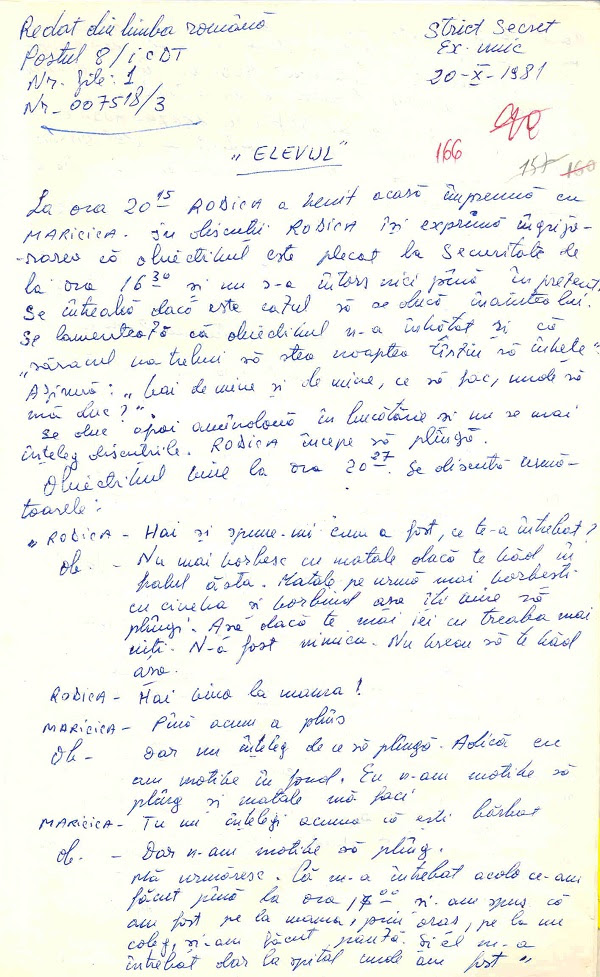 Redat din limba română
Strict Secret
Postul 8/i CDT
Ex. unic
Nr. file: 1
20-X-1981
Nr. 007518/3
"ELEVUL"
166
157 160
La ora 20 15 RODICA a venit acasă împreună cu
MARICICA. În discuții RODICA își exprimă îngrijo-
rarea că obiectivul este plecat la Securitate de
la ora 16 30 și nu s-a întors nici pînă în prezent.
Se întreabă dacă este cazul să se ducă înaintea lui.
Se lamentează că obiectivul n-a mîncat și că
"săracul va trebui să stea noaptea tîrziu să învețe".
Afirmă: "Vai de mine și de mine, ce să fac, unde să
mă duc?".
Se duc apoi amîndouă în bucătărie și nu se mai
înțeleg discuțiile. RODICA începe să plîngă.
Obiectivul vine la ora 20 27. Se discută urmă-
toarele:
"RODICA - Hai și spune-mi cum a fost, ce te-a întrebat?
Ob. - Nu mai vorbesc cu matale dacă te văd în
halul ăsta. Matale pe urmă mai vorbești
cu cineva și vorbind așa îți vine să
plîngi. Așa dacă te mai iei cu treaba mai
uiți. N-a fost nimica. Nu vreau să te văd
așa.
RODICA - Hai vino la mama!
MARICICA - Pînă acum a plîns
Ob. - Dar nu înțeleg de ce să plîngă. Adică eu
am motive în fond. Eu n-am motive să
plîng și matale mă faci
MARICICA - Tu nu înțelegi acuma că ești bărbat
Ob. - Dar n-am motive să plîng.
Mă urmăresc. Că m-a întrebat acolo ce-am
făcut pînă la ora 17 00 și-am spus că
am fost pe la mama, prin oraș, pe la un
coleg, și-am făcut pauză. Și el m-a
întrebat dar la spital unde am fost"